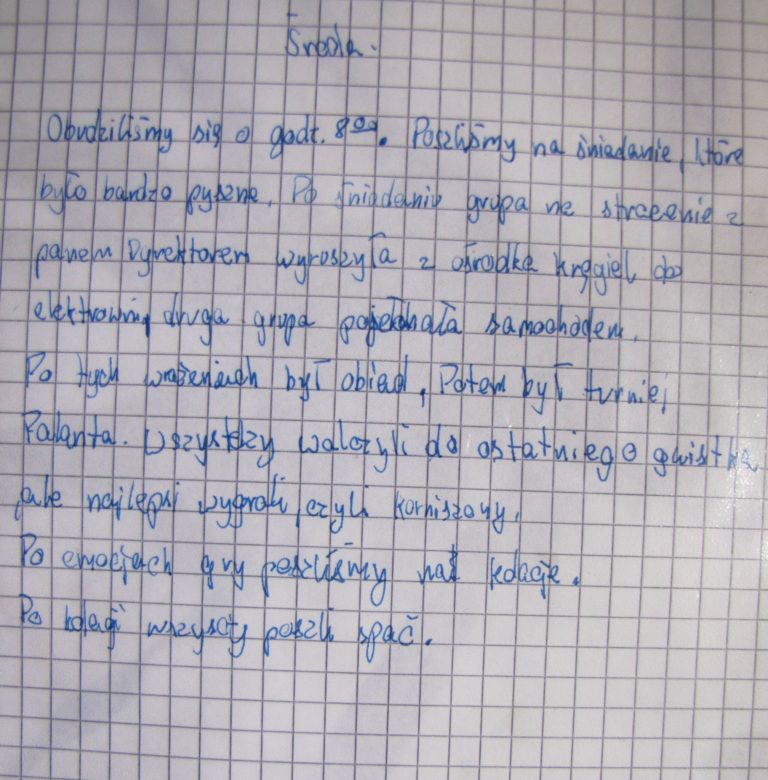 Środa.
Obudziliśmy się o godz. 8⁰⁰. Poszliśmy na śniadanie, które
było bardzo pyszne. Po śniadaniu grupa na strzeenie z
panem Dyrektorem wyroszyła z ośrodka kręgiel do
elektrowni, druga grupa pojechała samochodem.
Po tych wrażeniach był obiad, Potem był turniej
Palanta. Wszystkzy walczyli do ostatniego gwistka
,ale najlepsi wygrali, czyli korniszony.
Po emocjach gry poszliśmy na kolacje.
Po kolacji wszyscy poszli spać.